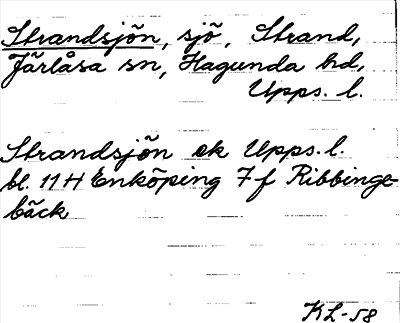 Strandsjön, sjö, Strand,
Järlåsa sn, Hagunda hd,
Upps. l.
Strandsjön ek Upps. l.
bl. 11 H Enköping 7 f Ribbinge-
bäck
KL-58